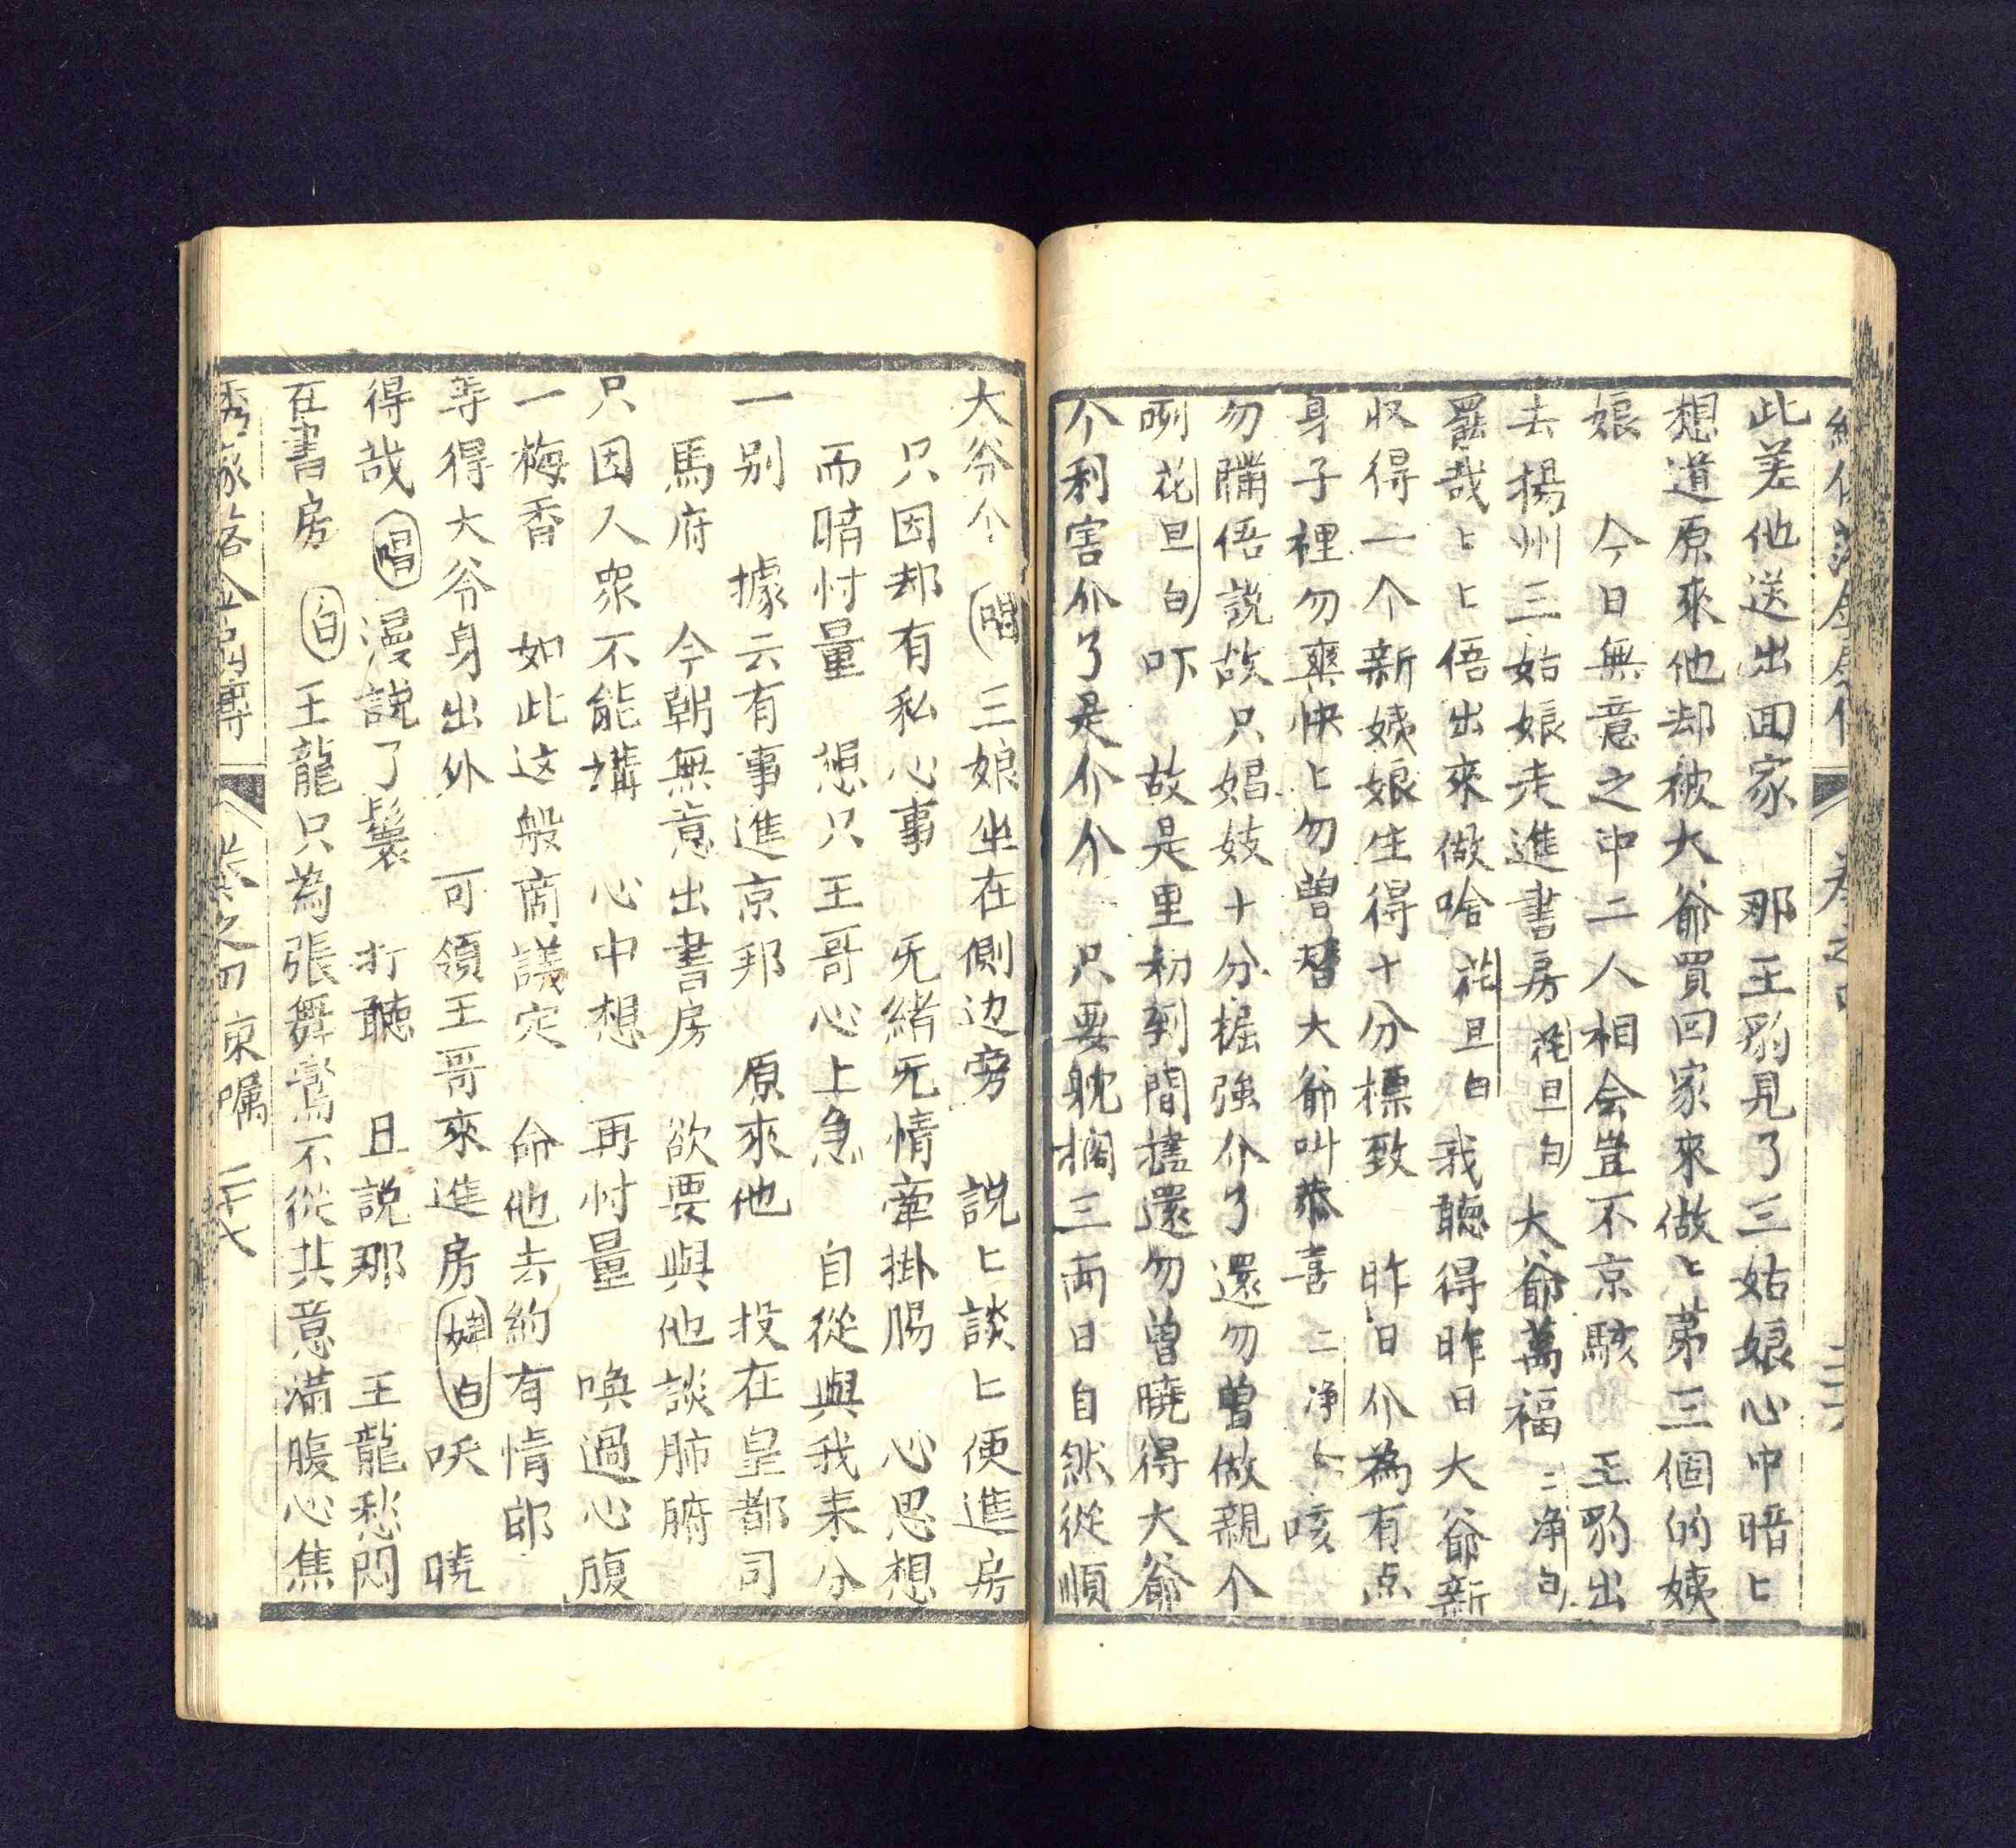 此差他送出回家　那王豹見了三姑娘心中暗〻
想道原來他却被大爺買回家來做〻第三個的姨
娘　今日無意之中二人相会豈不京駭　王豹出
去揚州三姑娘走進書房 花旦白 大爺萬福 二净白
罷哉〻〻俉出來做啥 花旦白 我聽得昨日大爺新
収得一个新姨娘生得十分標致　昨日介為有点
身子裡勿爽快〻勿曽替大爺叫恭喜 二净白 咳
勿關俉説故只娼妓十分掘強介了還勿曽做親个
咧 花旦白 吓　故是重初到間舊還勿曽曉得大爺
个利害介了是介介　只要躭擱三両日自然從順
大爷个 唱 三娘坐在側边旁　説〻談〻便進房
只因却有私心事　旡緒旡情牽掛腸　心思想
而暗忖量　想只王哥心上急　自從與我耒分
一别　據云有事進京邦　原來他　投在皇都司
馬府　今朝無意出書房　欲要與他談肺腑
只因人眾不能講　心中想　再忖量　喚過心腹
一梅香　如此这般商議定　命他去約有情郎
等得大爷身出外　可領王哥來進房 婢白 呋　曉
得哉 唱 漫説了鬟　打聽　且説那　王龍愁悶
在書房 白 王龍只為張舞鸞不從其意滿腹心焦
卷之四 東嘱 二十七